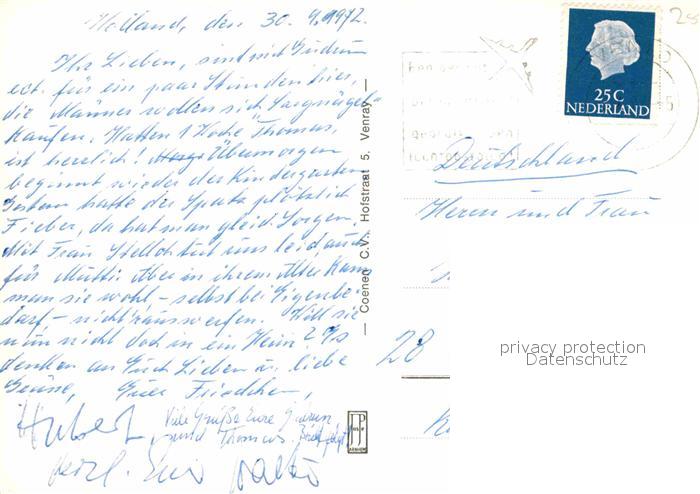 Holland, den 30. 4. 1972.
Ihr Lieben, sind mit Gudrun
ect. für ein paar Stunden hier,
die Männer wollen sich
kaufen. Hatten 1 Woche Thomas,
est herrlich! Übermorgen
beginnt wieder der Kindergarten
Gestern hatte der Spatz plötzlich
Fieber, da hat man gleich Sorgen.
Mit Frau tut uns leid, auch
für Mutti. Aber in ihrem Alter kann
man sie wohl, – selbst bei Eigenbe-
darf – nicht rauswerfen. Will sie
nun nicht doch in ein Heim?
denken an Euch Lieben u. liebe
Grüsse, Eure
Hubert
Viele Grüße Eure Gudrun
und Thomas. Brief folgt
herzl. Euer
— Coenen C.V., Hofstraat 5. Venray —
JP
ARNHEM
25 C
NEDERLAND
Deutschland
Herrn und Frau
28
privacy protection
Datenschutz